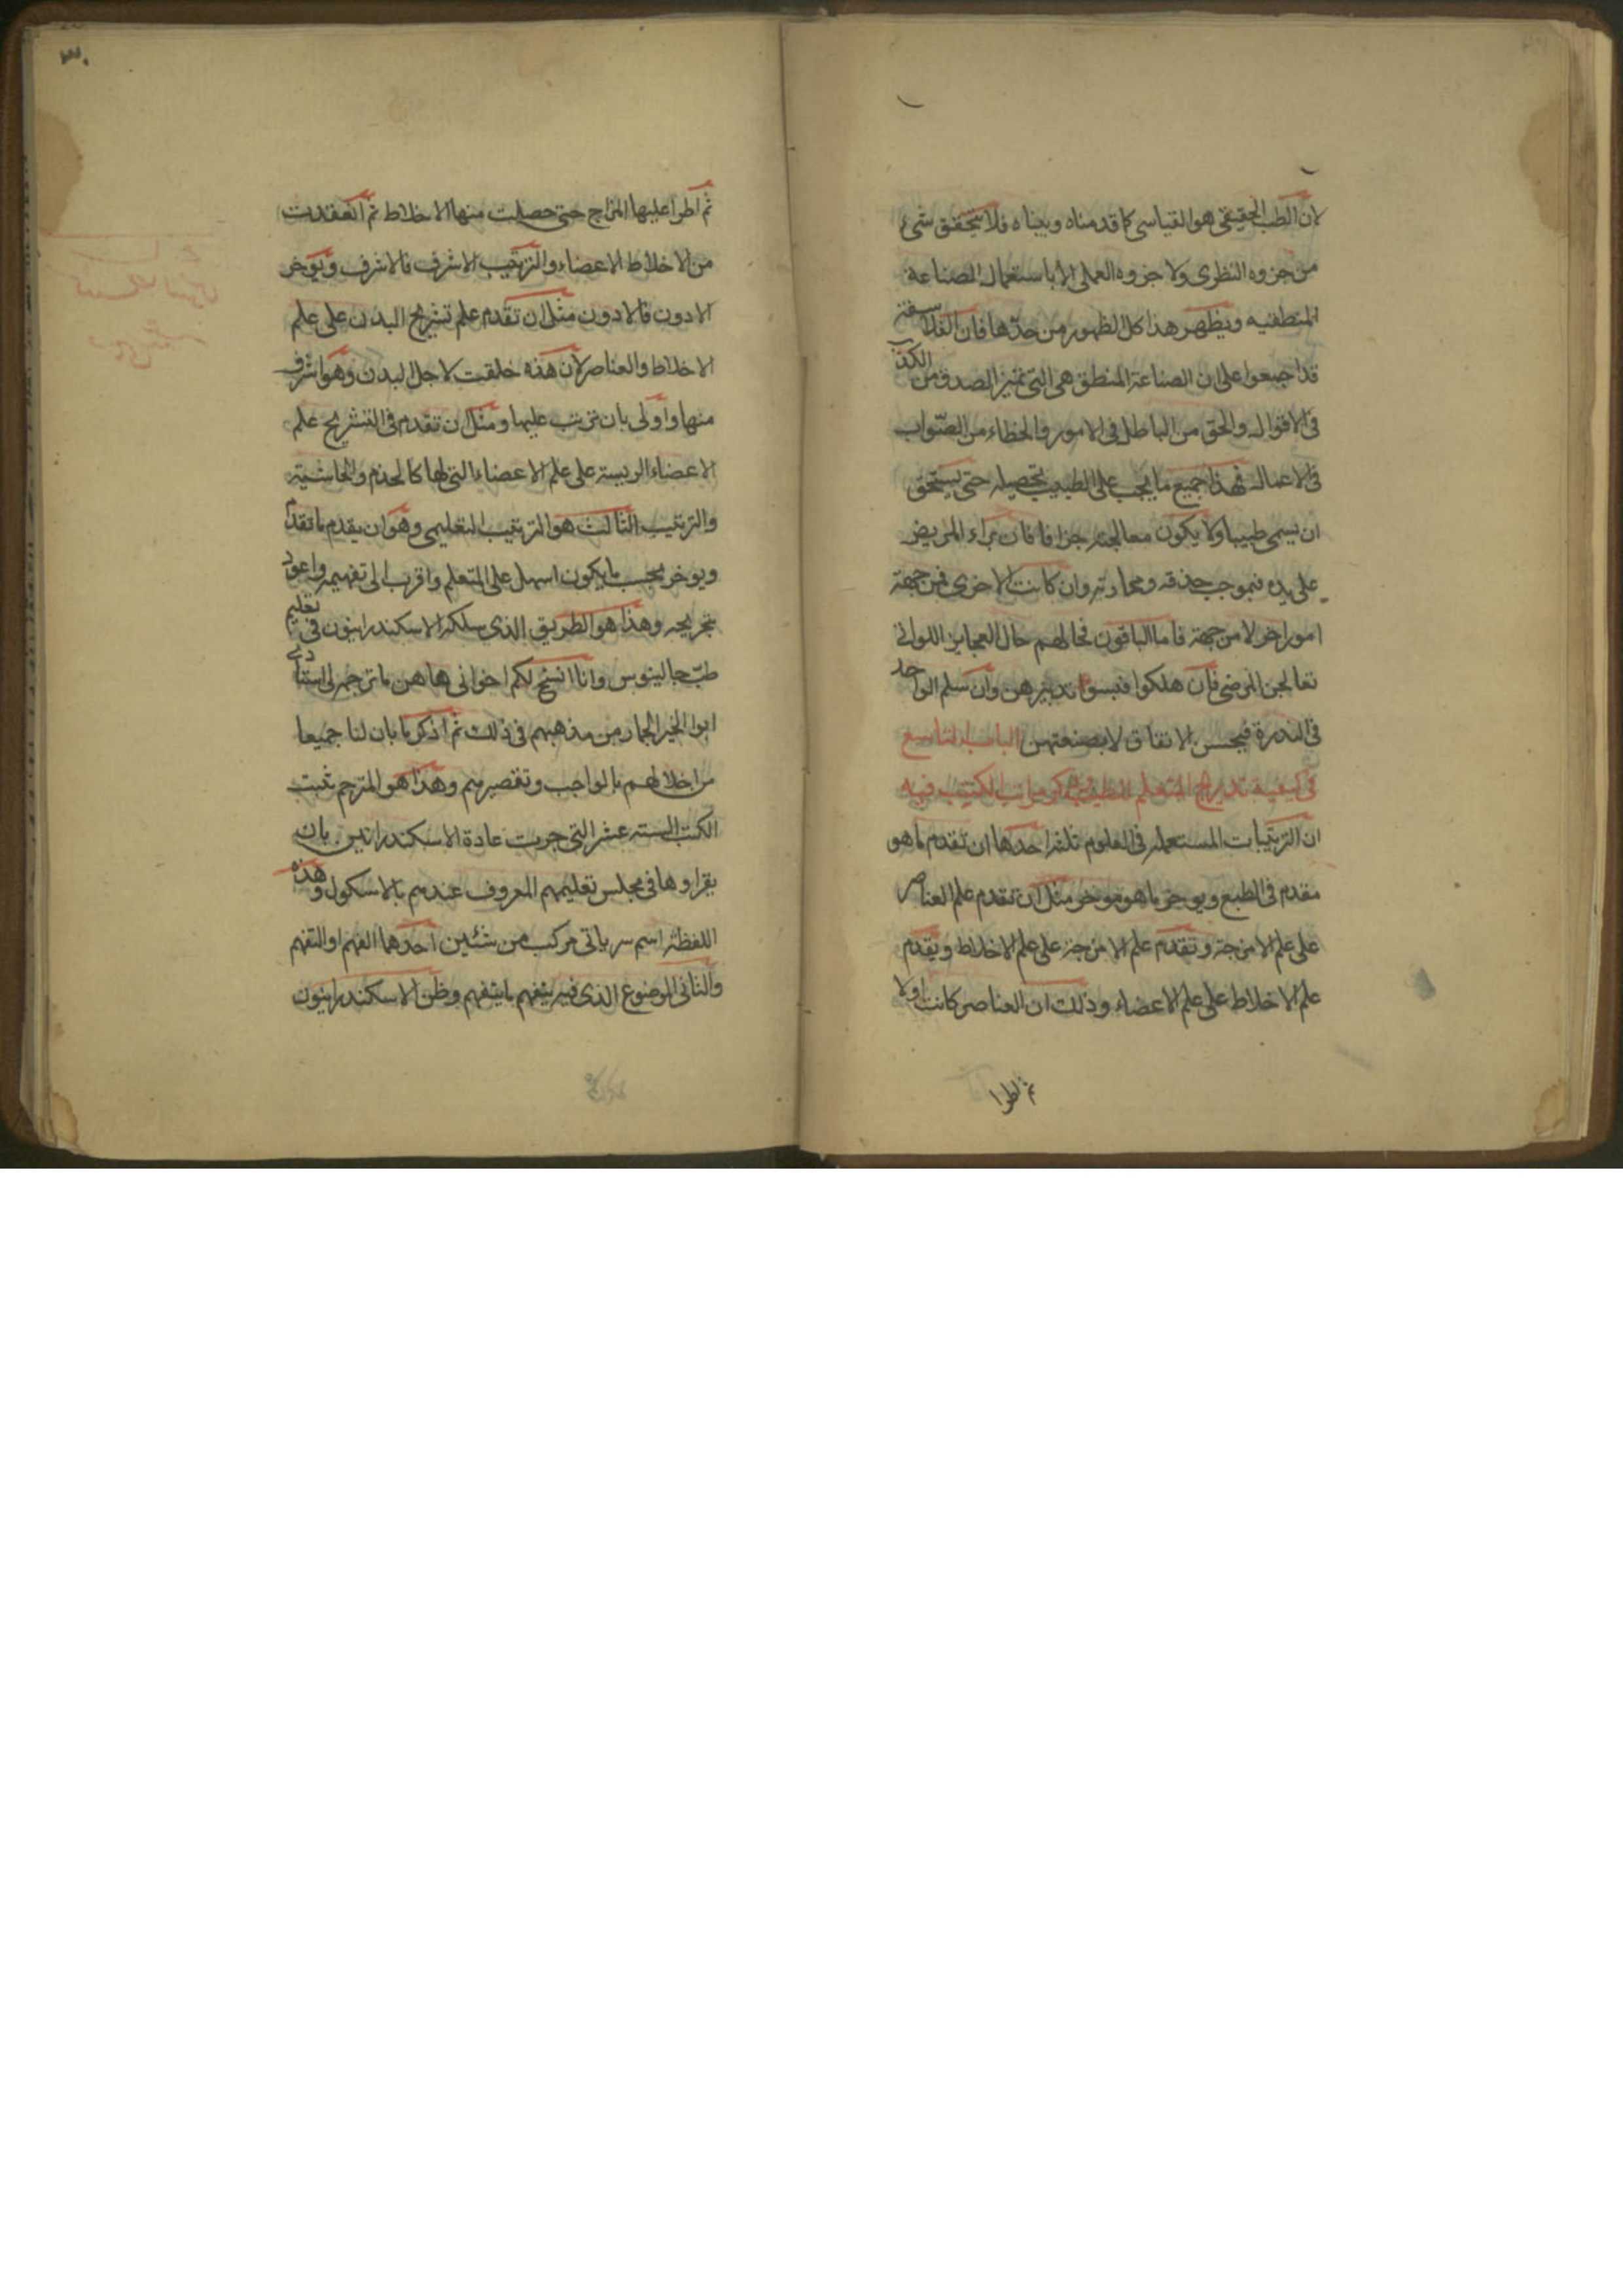 لان الطب الحقيقى هو القياسى كما قدمناه وبيناه فلا يتحقق شىء
من جزوه النظرى ولا جزوه العملى الا باستعمال الصناعة
المنطقيه ويظهر هذا كل الظهور من حدها فان الفلاسفة
قد اجمعوا على ان الصناعة المنطق هى التى تميز الصدق من الكذب
فى الاقوال والحق من الباطل فى الامور والخطاء من الصواب
فى الاعمال فهذا جميع ما يجب على الطبيب تحصيله حتى يستحق
ان يسمى طبيبا ولا يكون معالجته جزافا فان براء المريض
على يده فبموجب حذقه ومحاربته وان كانت الاخرى فمن جهة
امور اخر لا من جهة فاما الباقون فحالهم حال العجايز اللواتى
تعالجن المرضى فان هلكوا فبسوا تدبيرهن وان سلم الواحد
فى الندرة فبحسن الاتفاق لا بصنعتهن الباب التاسع
فى كيفية تدريج المتعلم للطب وذكر مراتب الكتب فيه
ان الترتيبات المستعمله فى العلوم ثلثه احدها ان تقدم ما هو
مقدم فى الطبع ويوخر ما هو موخر مثل ان تقدم علم العناصر
على علم الامزجة وتقدم علم الامزجة على علم الاخلاط ويقدم
علم الاخلاط على علم الاعضاء وذلك ان العناصر كانت اولا
ثم اطرا
٣٠
ثم اطرا عليها المزاج حتى حصلت منها الاخلاط ثم انعقدت
من الاخلاط الاعضاء والترتيب الاشرف فالاشرف ويوخر
الادون فالادون مثل ان تقدم علم تشريح البدن على علم
الاخلاط والعناصر لان هذه خلقت لاجل البدن وهو اشرف
منها واولى بان يترتب عليها ومثل ان تقدم فى التشريح علم
الاعضاء الريسه على علم الاعضاء التى لها كالخدم والحاشية
والترتيب الثالث هو الترتيب التعليمى وهو ان يقدم ما تقدم
ويوخر بحسب ما يكون اسهل على المتعلم واقرب الى تفهيمه واعود
بتخريجه وهذا هو الطريق الذى سلكه الاسكندرانيون فى تعليم
طب جالينوس وانا انسخ لكم اخوانى هاهنا ما ترجمه لى استادى
ابوا الخير الخمار من مذهبهم فى ذلك ثم اذكر ما بان لنا جميعا
من اخلالهم بالواجب وتقصيرهم وهذا هو المترجم ثبت
الكتب الستة عشر التى جرت عادة الاسكندرانيين بان
يقراوها فى مجلس تعليمهم المعروف عندهم بالاسكول وهذه
اللفظة اسم سريانى مركب من شئين احدهما الفهم او التفهم
والثانى الموضوع الذى فيه يتفهم ما يتفهم وظن الاسكندرانيون